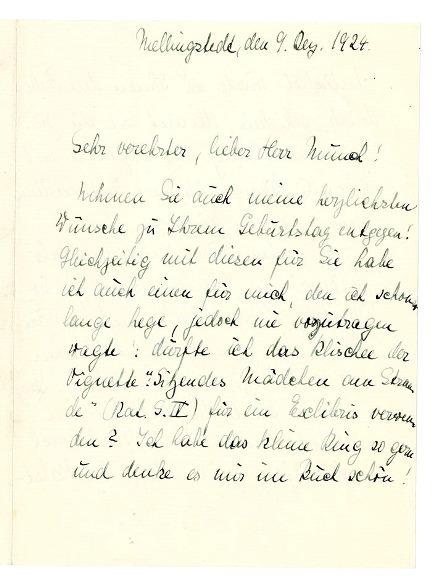 Mellingstedt, den 9. Dez. 1924.
Sehr verehrter, lieber Herr Munch!
Nehmen Sie auch meine herzlichsten
Wünsche zu Ihrem Geburtstag entgegen!
Gleichzeitig mit diesen für Sie habe
ich auch einen für mich, den ich schon
lange hege, jedoch nie vorzutragen
wagte: dürfte ich das Klischee der
Vignette: "Sitzendes Mädchen am Stran-
de" (Kat. S. IV) für ein Exlibris verwen-
den? Ich habe das kleine Ding so gern
und denke es mir im Buch schön!